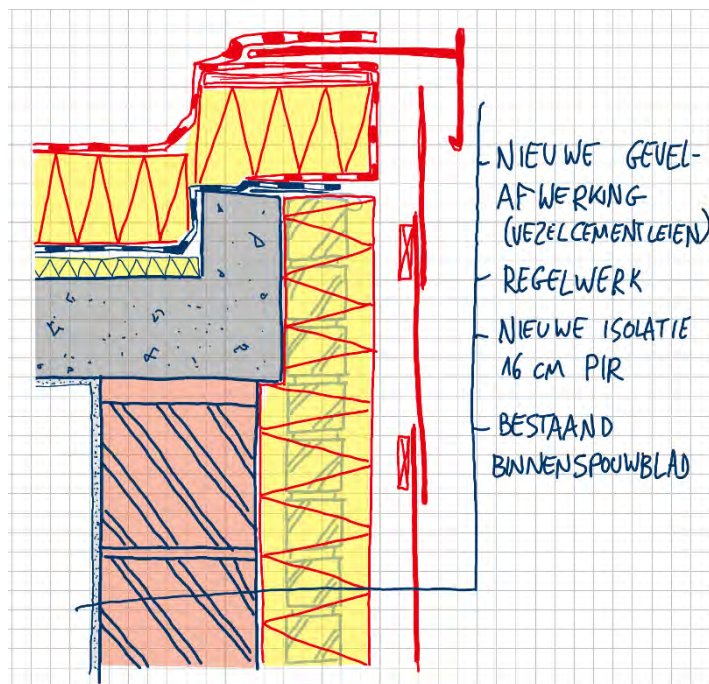 - NIEUWE GEVEL-
AFWERKING
(VEZELCEMENTLEIEN)
- REGELWERK
- NIEUWE ISOLATIE
16 CM PIR
- BESTAAND
BINNENSPOUWBLAD